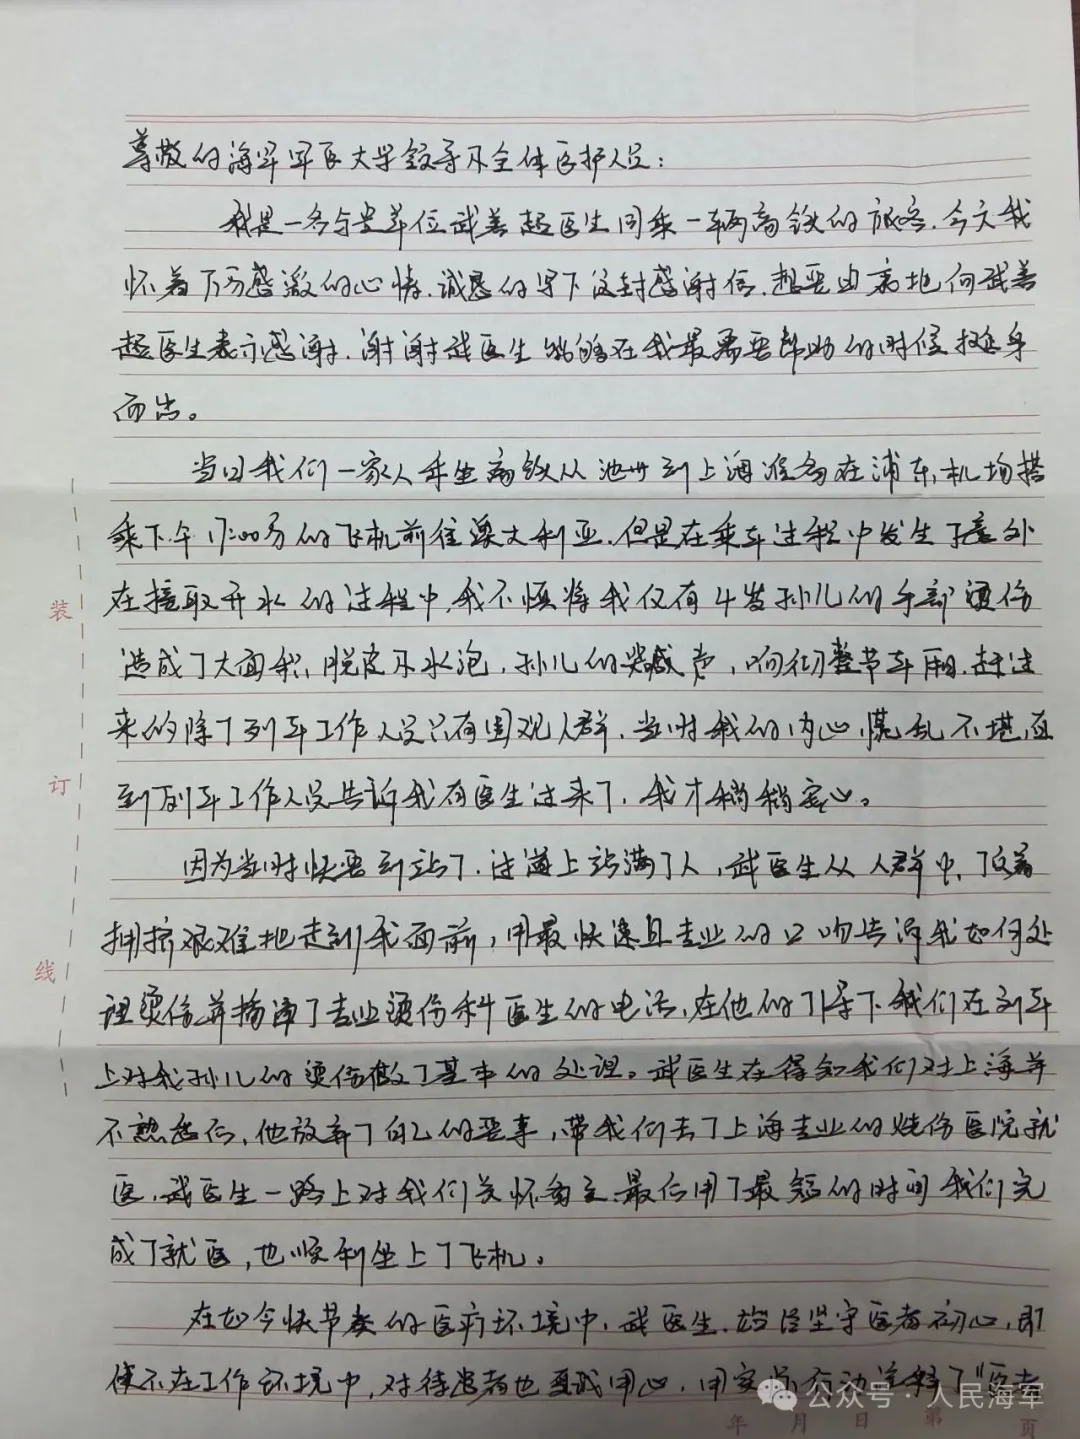 尊敬的海军军医大学领导及全体医护人员：
我是一名与贵单位武善超医生同乘一辆高铁的旅客，今天我
怀着万分感激的心情，诚恳的写下这封感谢信，想要由衷地向武善
超医生表示感谢，谢谢武医生能够在我最需要帮助的时候挺身
而出。
当日我们一家人乘坐高铁从池州到上海准备在浦东机场搭
乘下午17:00分的飞机前往澳大利亚，但是在乘车过程中发生了意外
在接取开水的过程中，我不慎将我仅有4岁孙儿的手部烫伤
造成了大面积脱皮及水泡，孙儿的哭喊声，响彻整节车厢，赶过
来的除了列车工作人员只有围观人群，当时我的内心慌乱不堪，直
到列车工作人员告诉我有医生过来了，我才稍稍安心。
因为当时快要到站了，过道上站满了人，武医生从人群中，顶着
拥挤艰难地走到我面前，用最快速且专业的口吻告诉我如何处
理烫伤并拨通了专业烫伤科医生的电话，在他的引导下我们在列车
上对我孙儿的烫伤做了基本的处理。武医生在得知我们对上海并
不熟悉后，他放弃了自己的要事，带我们去了上海专业的烧伤医院就
医，武医生一路上对我们关怀备至，最后用了最短的时间我们完
成了就医，也顺利坐上了飞机。
在如今快节奏的医疗环境中，武医生，始终坚守医者初心，即
使不在工作环境中，对待患者也真诚用心，用实际行动诠释了“医者
装
订
线
年 月 日 第 页
公众号·人民海军